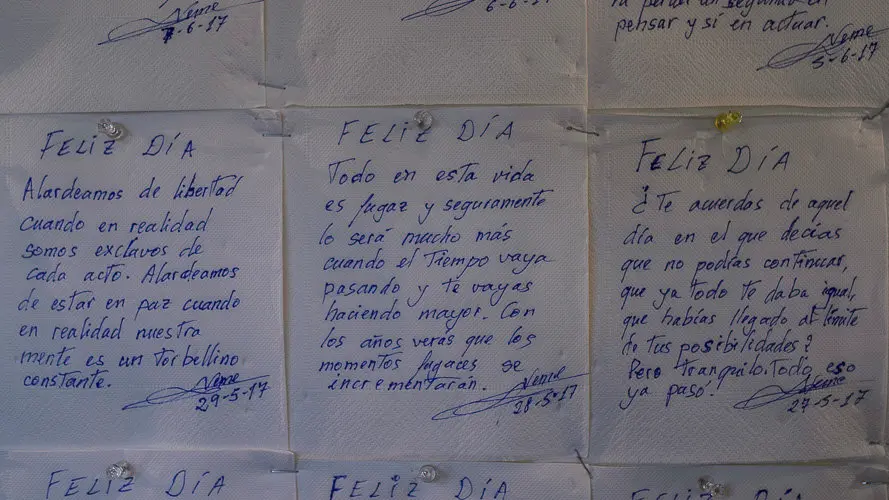 Neme
7-6-17
6-6-17
pensar y sí en actuar.
Neme
5-6-17
FELiZ DÍA
Alardeamos de libertad
cuando en realidad
somos exclavos de
cada acto. Alardeamos
de estar en paz cuando
en realidad nuestra
mente es un torbellino
constante.
Neme
29-5-17
FELiZ DÍA
Todo en esta vida
es fugaz y seguramente
lo será mucho más
cuando el Tiempo vaya
pasando y te vayas
haciendo mayor. Con
los años verás que los
momentos fugaces se
incrementarán.
Neme
28-5-17
FELiZ DÍA
¿Te acuerdas de aquel
día en el que decías
que no podías continuar,
que ya todo te daba igual,
que habías llegado al límite
de tus posibilidades?
Pero tranquilo. Todo eso
ya pasó.
Neme
27-5-17
FELiZ DÍA
FELiZ DÍA
FELiZ DÍA